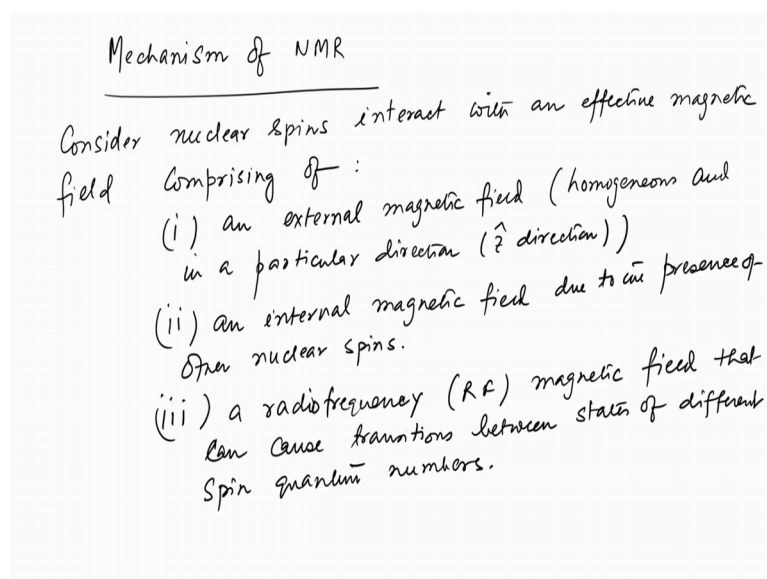 Mechanism of NMR
Consider nuclear spins interact with an effective magnetic
field comprising of :
(i) an external magnetic field (homogeneous and
in a particular direction (ẑ direction))
(ii) an internal magnetic field due to the presence of
other nuclear spins.
(iii) a radiofrequency (RF) magnetic field that
can cause transitions between states of different
spin quantum numbers.